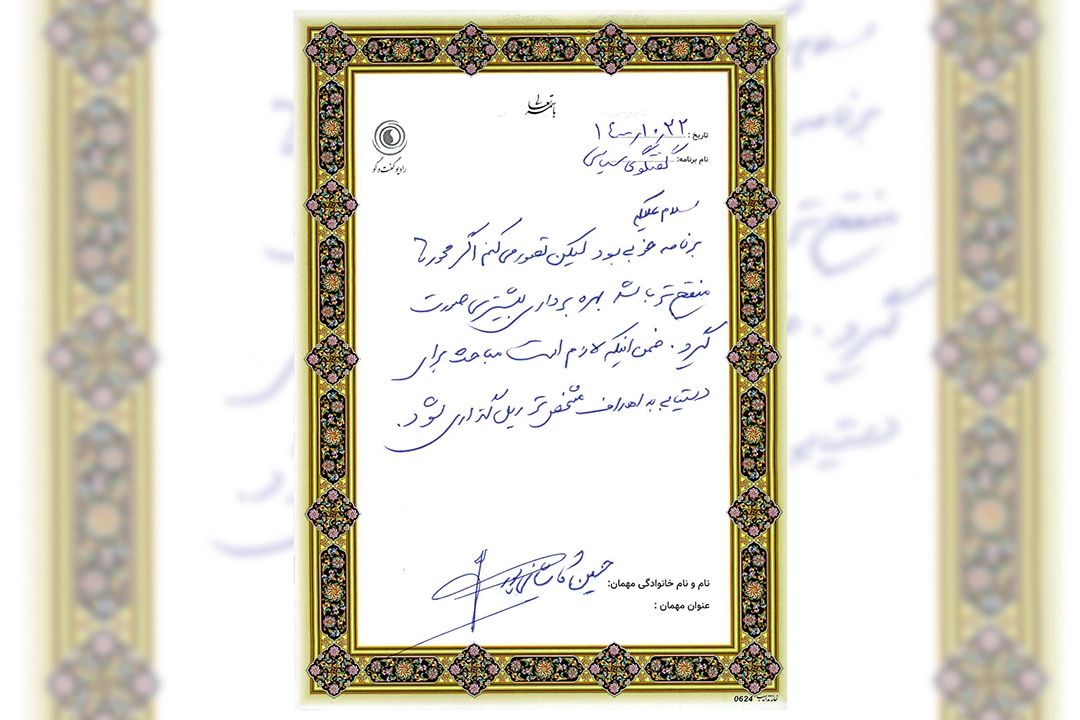 باسمه تعالی
رادیو گفت و گو
تاریخ:
نام برنامه: گفتگوی سیاسی
سلام علیکم
برنامه خوبی بود لیکن تصور می کنم اگر محورها
منقح تر باشد بهره برداری بیشتری صورت
گیرد. ضمن اینکه لازم است مباحث برای
دستیابی به اهداف مشخص تر ریل گذاری شود.
نام و نام خانوادگی مهمان: حسین
عنوان مهمان :
0624